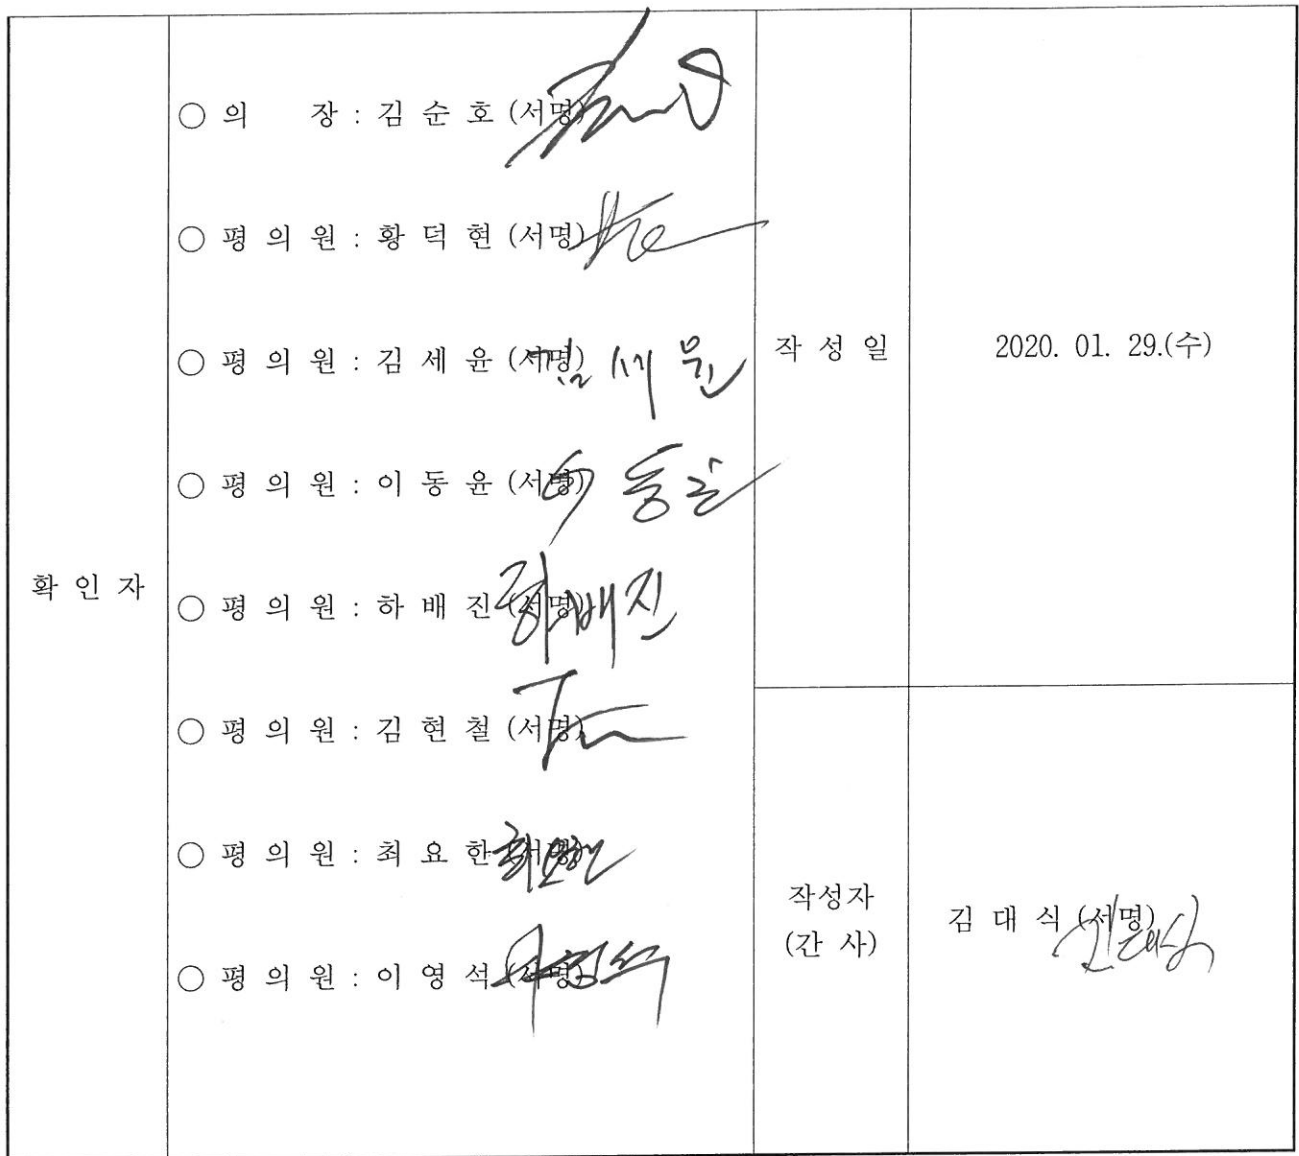 확 인 자
○ 의 장 : 김 순 호 (서명)
○ 평 의 원 : 황 덕 현 (서명)
○ 평 의 원 : 김 세 윤 (서명)
○ 평 의 원 : 이 동 윤 (서명)
○ 평 의 원 : 하 배 진 (서명)
하배진
○ 평 의 원 : 김 현 철 (서명)
○ 평 의 원 : 최 요 한 (서명)
최요한
○ 평 의 원 : 이 영 석 (서명)
작 성 일
2020. 01. 29.(수)
작성자
(간 사)
김 대 식 (서명)